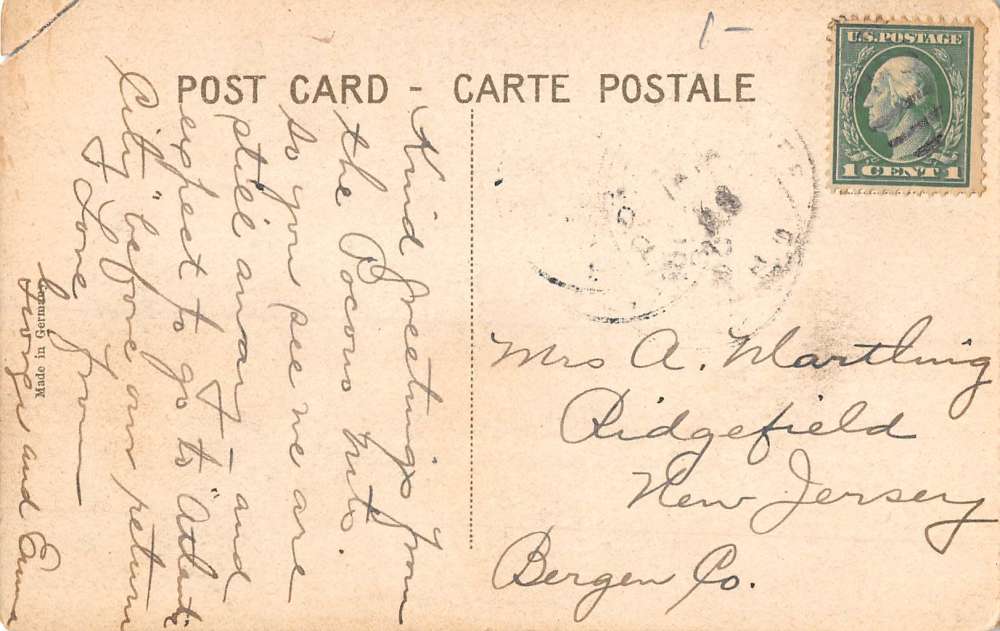 1-
U.S. POSTAGE
1 CENT 1
POST CARD - CARTE POSTALE
Kind Greetings from
the Pocono Mts.
So you see we are
still away & and
expect to go to "Atlantic
City" before our return
& Love from
George and Emma
Made in Germany
Mrs A. Martling
Ridgefield
New Jersey
Bergen Co.